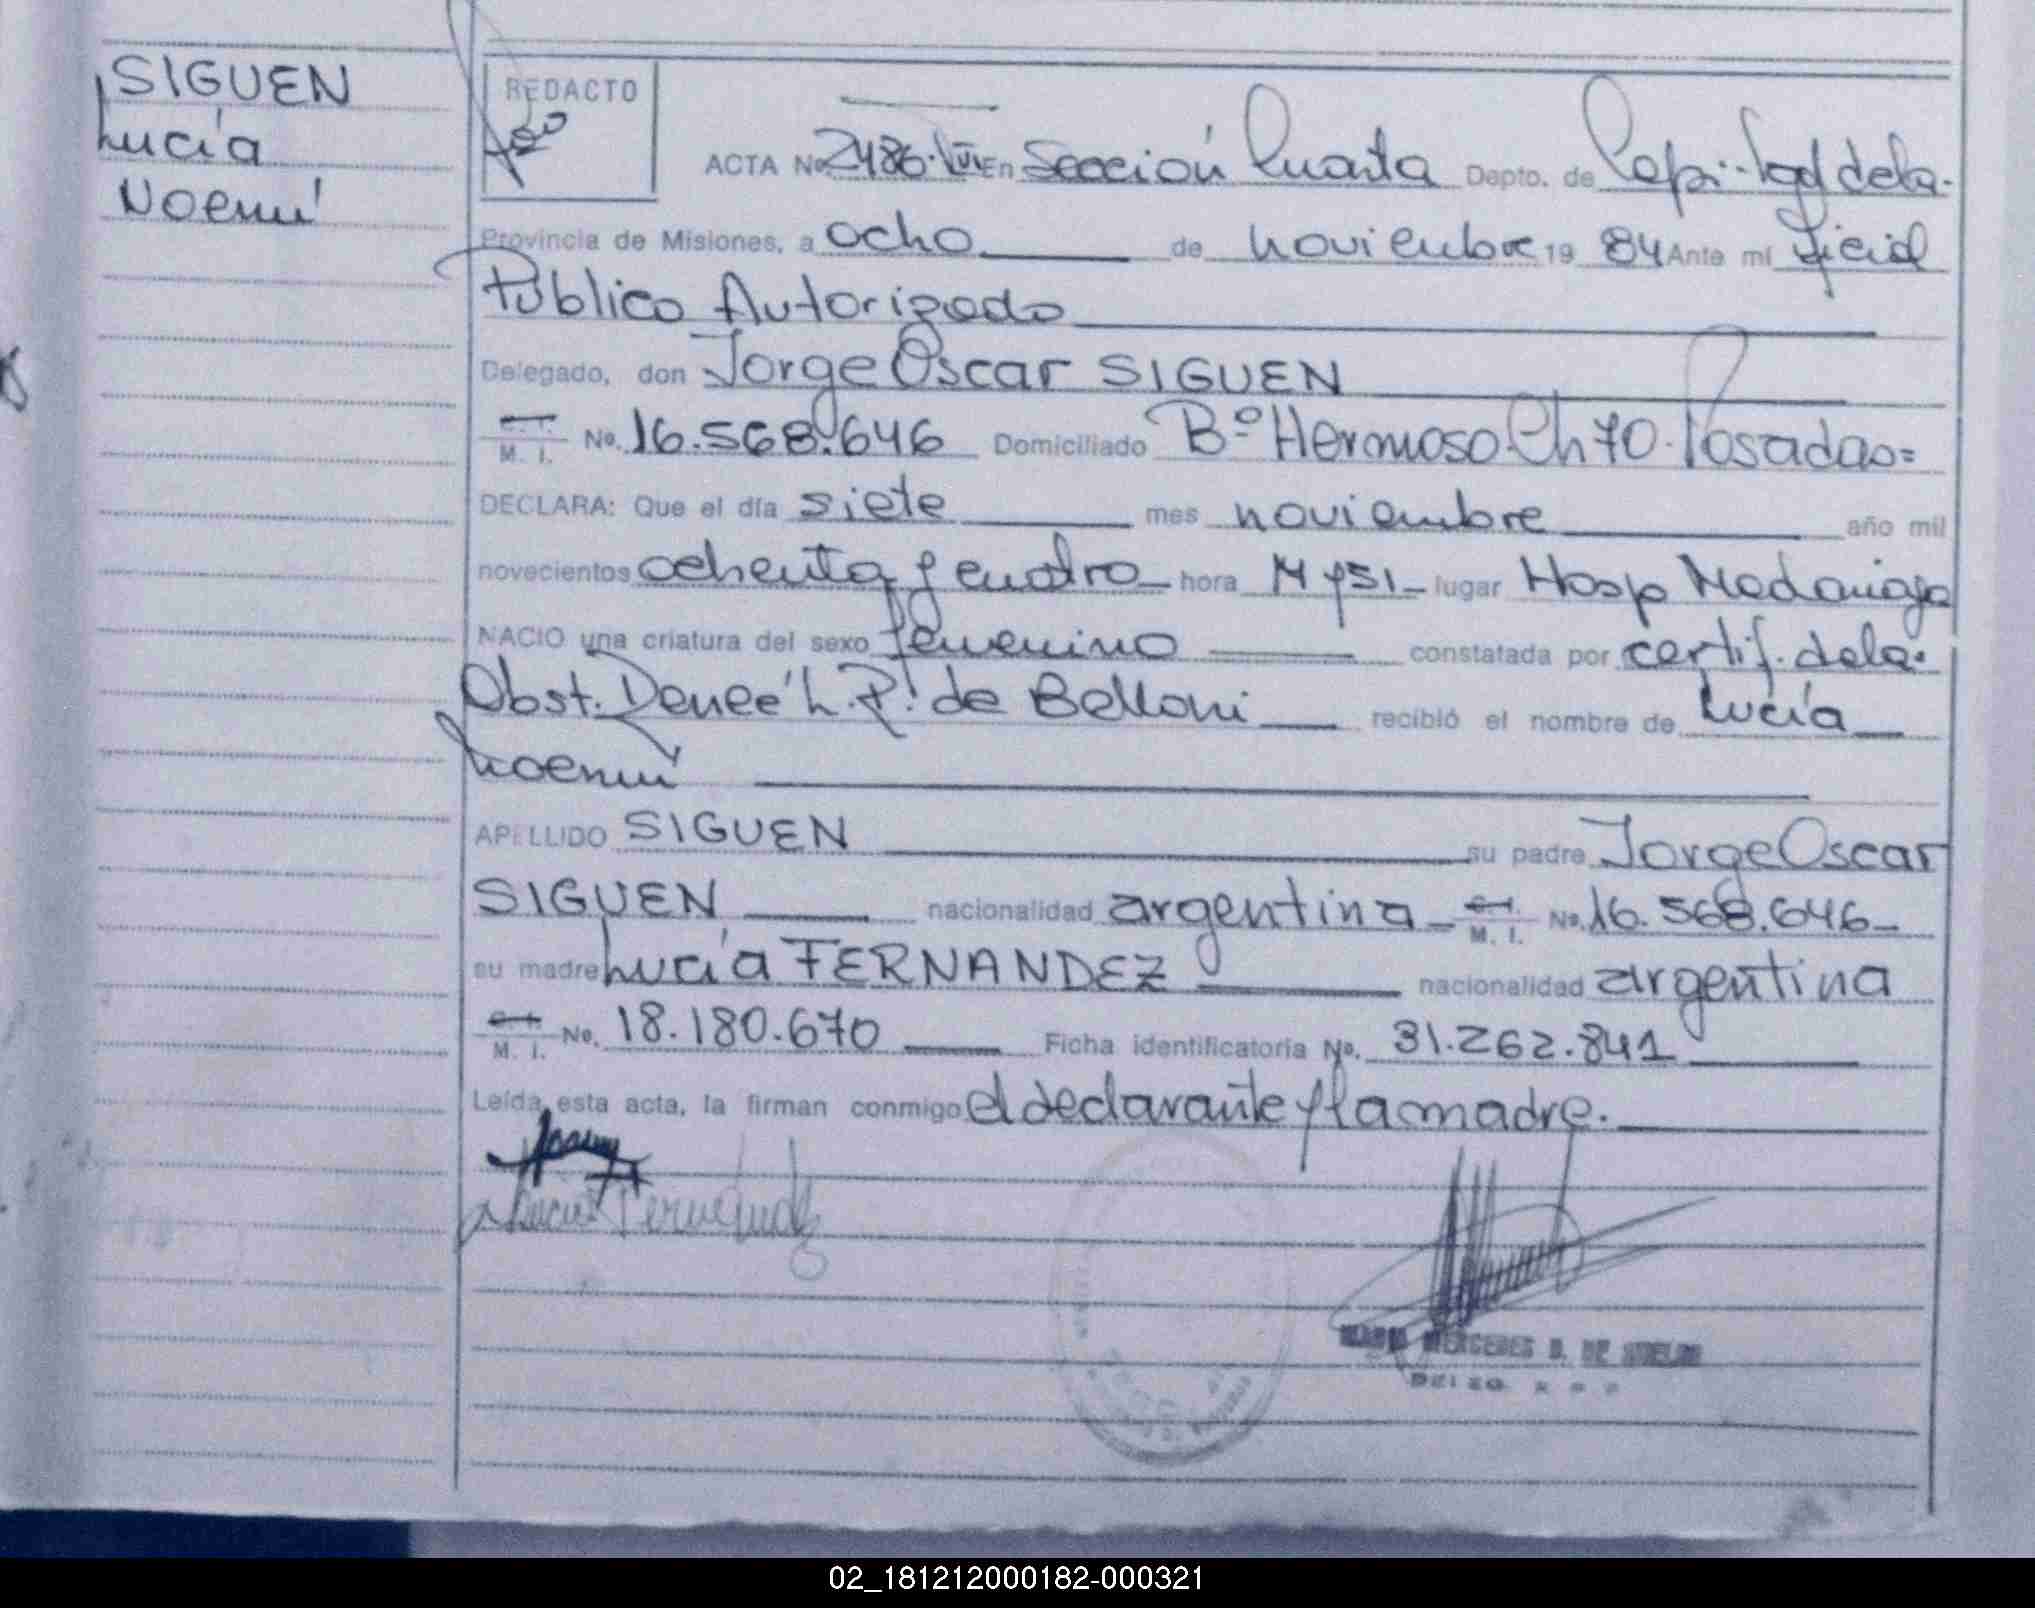 SIGUEN
Lucía
Noemí
REDACTO
ACTA No. 2486. VII En Sección Cuarta Depto. de Capi- dela.
Provincia de Misiones, a ocho de noviembre 19 84 Ante mí Oficial
Público Autorizado
Delegado, don Jorge Oscar SIGUEN
M. I. No. 16.568.646 Domiciliado Bº Hermoso Ch 70. Posadas=
DECLARA: Que el día siete mes noviembre año mil
novecientos ochenta y cuatro hora y 51 lugar Hosp Madariaga
NACIO una criatura del sexo femenino constatada por certif. dela.
Obst. Reneé L. P. de Belloni recibió el nombre de Lucía
Noemí
APELLIDO SIGUEN su padre Jorge Oscar
SIGUEN nacionalidad argentina M. I. No. 16.568.646
su madre Lucía FERNANDEZ nacionalidad argentina
M. I. No. 18.180.670 Ficha identificatoria No. 31.262.841
Leída esta acta, la firman conmigo el declarante y la madre.
MERCEDES DE
02_181212000182-000321